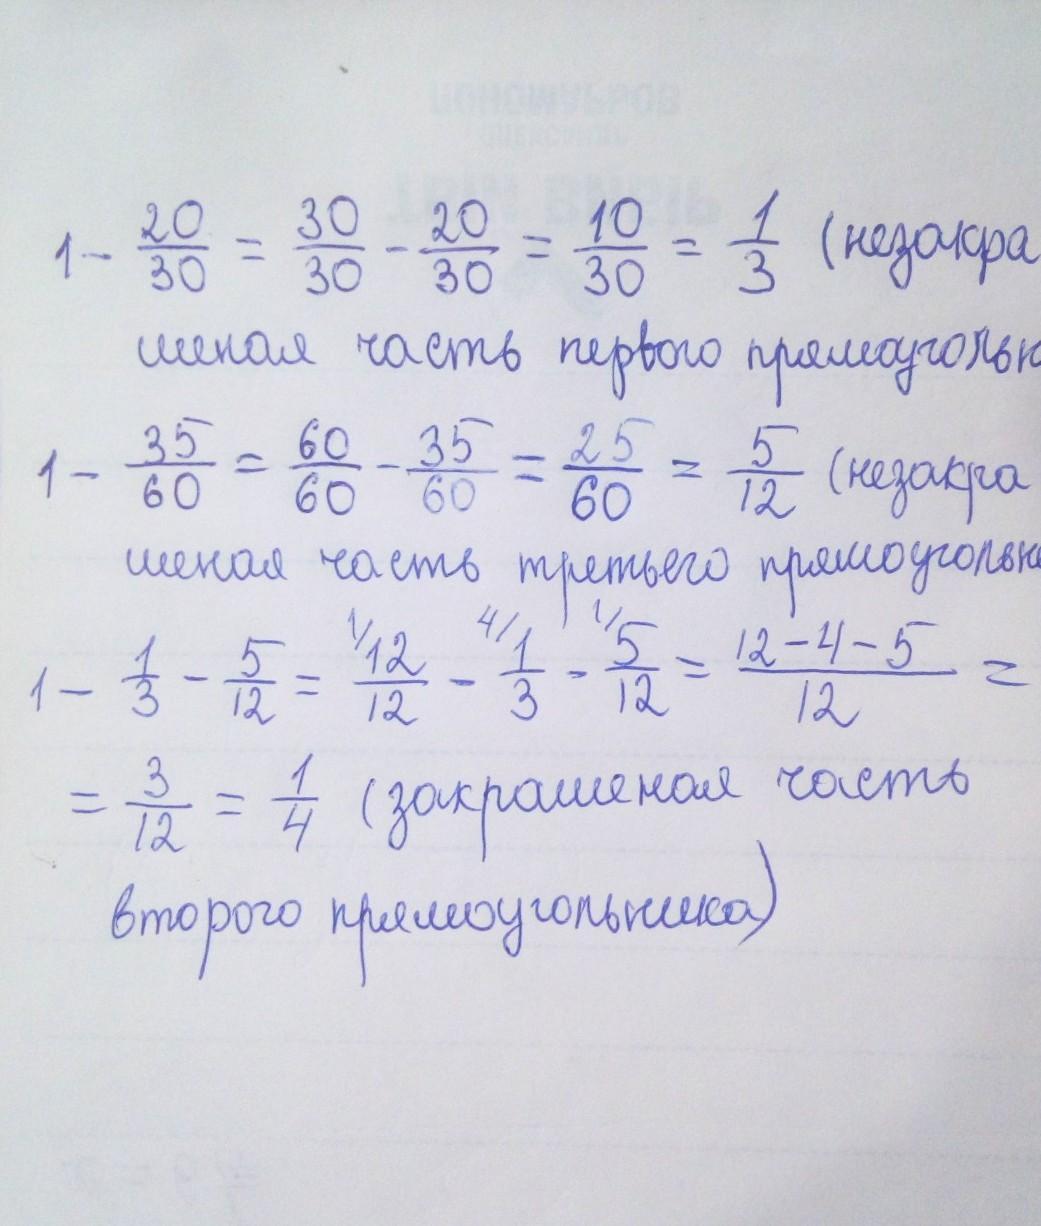 1 - 20/30 = 30/30 - 20/30 = 10/30 = 1/3 (незакра
шеная часть первого прямоугольн
1 - 35/60 = 60/60 - 35/60 = 25/60 = 5/12 (незакра
шеная часть третьего прямоугольн
1 - 1/3 - 5/12 = 1/ 12/12 - 4/ 1/3 - 1/ 5/12 = 12-4-5/12 =
= 3/12 = 1/4 (закрашеная часть
второго прямоугольника)